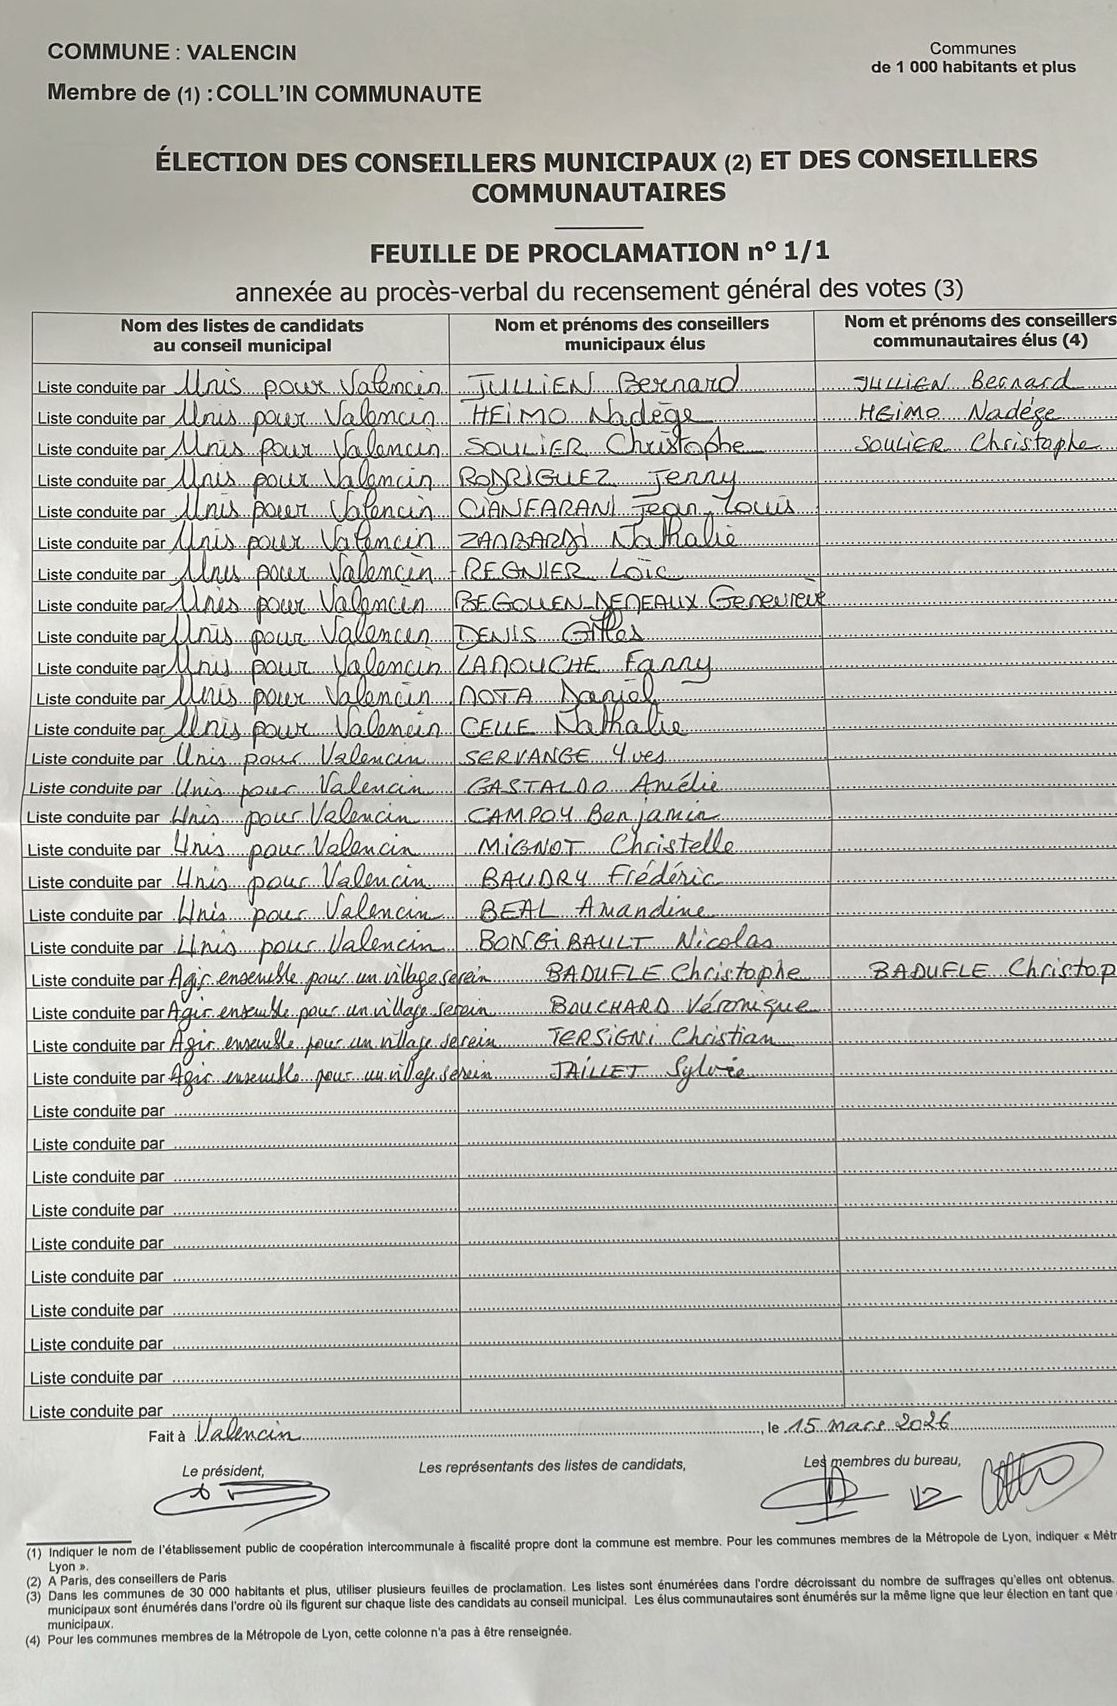 COMMUNE : VALENCIN
Communes
de 1 000 habitants et plus
Membre de (1) : COLL'IN COMMUNAUTE
ÉLECTION DES CONSEILLERS MUNICIPAUX (2) ET DES CONSEILLERS
COMMUNAUTAIRES
FEUILLE DE PROCLAMATION n° 1/1
annexée au procès-verbal du recensement général des votes (3)
Nom des listes de candidats au conseil municipal | Nom et prénoms des conseillers municipaux élus | Nom et prénoms des conseillers communautaires élus (4)
Liste conduite par Unis pour Valencin JULLIEN Bernard JULLIEN Bernard
Liste conduite par Unis pour Valencin HEIMO Nadège HEIMO Nadége
Liste conduite par Unis pour Valencin SOULIER Christophe SOULIER Christophe
Liste conduite par Unis pour Valencin RODRIGUEZ Jenny
Liste conduite par Unis pour Valencin CIANFARANI Jean-Louis
Liste conduite par Unis pour Valencin Nathalie
Liste conduite par Unis pour Valencin REGNIER Loïc
Liste conduite par Unis pour Valencin Geneviève
Liste conduite par Unis pour Valencin DENIS Gilles
Liste conduite par Unis pour Valencin LANOUCHE Fanny
Liste conduite par Unis pour Valencin Daniel
Liste conduite par Unis pour Valencin CELLE Nathalie
Liste conduite par Unis pour Valencin SERVANGE Yves
Liste conduite par Unis pour Valencin GASTALDO Amélie
Liste conduite par Unis pour Valencin CAMPOY Benjamin
Liste conduite par Unis pour Valencin MIGNOT Christelle
Liste conduite par Unis pour Valencin BAUDRY Frédéric
Liste conduite par Unis pour Valencin BEAL Amandine
Liste conduite par Unis pour Valencin BONGIBAULT Nicolas
Liste conduite par Agir ensemble pour un village serein BADUFLE Christophe BADUFLE Christop
Liste conduite par Agir ensemble pour un village serein BOUCHARD Véronique
Liste conduite par Agir ensemble pour un village serein TERSIGNI Christian
Liste conduite par Agir ensemble pour un village serein JAILLET Sylvie
Liste conduite par
Liste conduite par
Liste conduite par
Liste conduite par
Liste conduite par
Liste conduite par
Liste conduite par
Liste conduite par
Liste conduite par
Liste conduite par
Fait à Valencin, le 15 mars 2026
Le président, Les représentants des listes de candidats, Les membres du bureau,
(1) Indiquer le nom de l'établissement public de coopération intercommunale à fiscalité propre dont la commune est membre. Pour les communes membres de la Métropole de Lyon, indiquer « Métr
Lyon ».
(2) A Paris, des conseillers de Paris
(3) Dans les communes de 30 000 habitants et plus, utiliser plusieurs feuilles de proclamation. Les listes sont énumérées dans l'ordre décroissant du nombre de suffrages qu'elles ont obtenus.
municipaux sont énumérés dans l'ordre où ils figurent sur chaque liste des candidats au conseil municipal. Les élus communautaires sont énumérés sur la même ligne que leur élection en tant que
municipaux.
(4) Pour les communes membres de la Métropole de Lyon, cette colonne n'a pas à être renseignée.